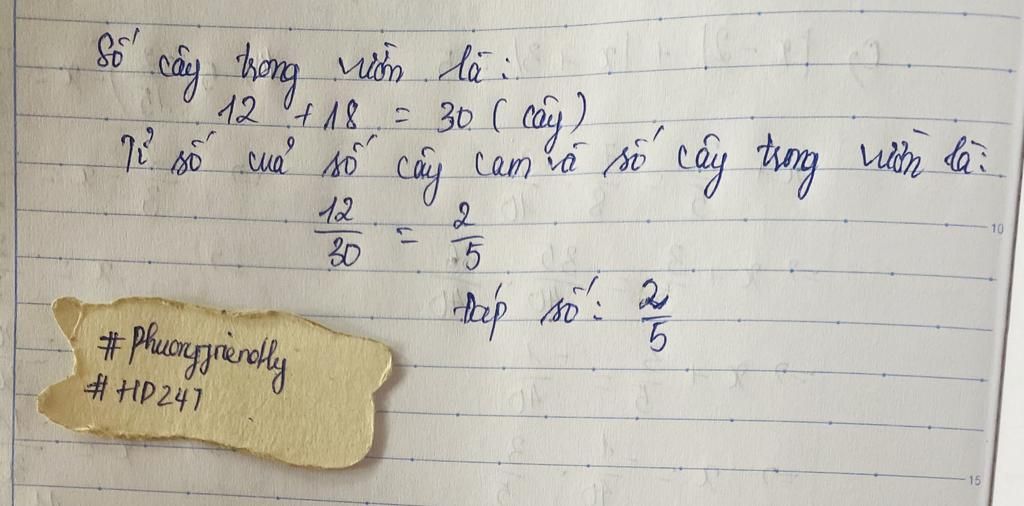 Số cây trong vườn là:
12 + 18 = 30 (cây)
Tỉ số của số cây cam và số cây trong vườn là:
12/30 = 2/5
Đáp số: 2/5
#Phuongfriendly
#HD247
10
15